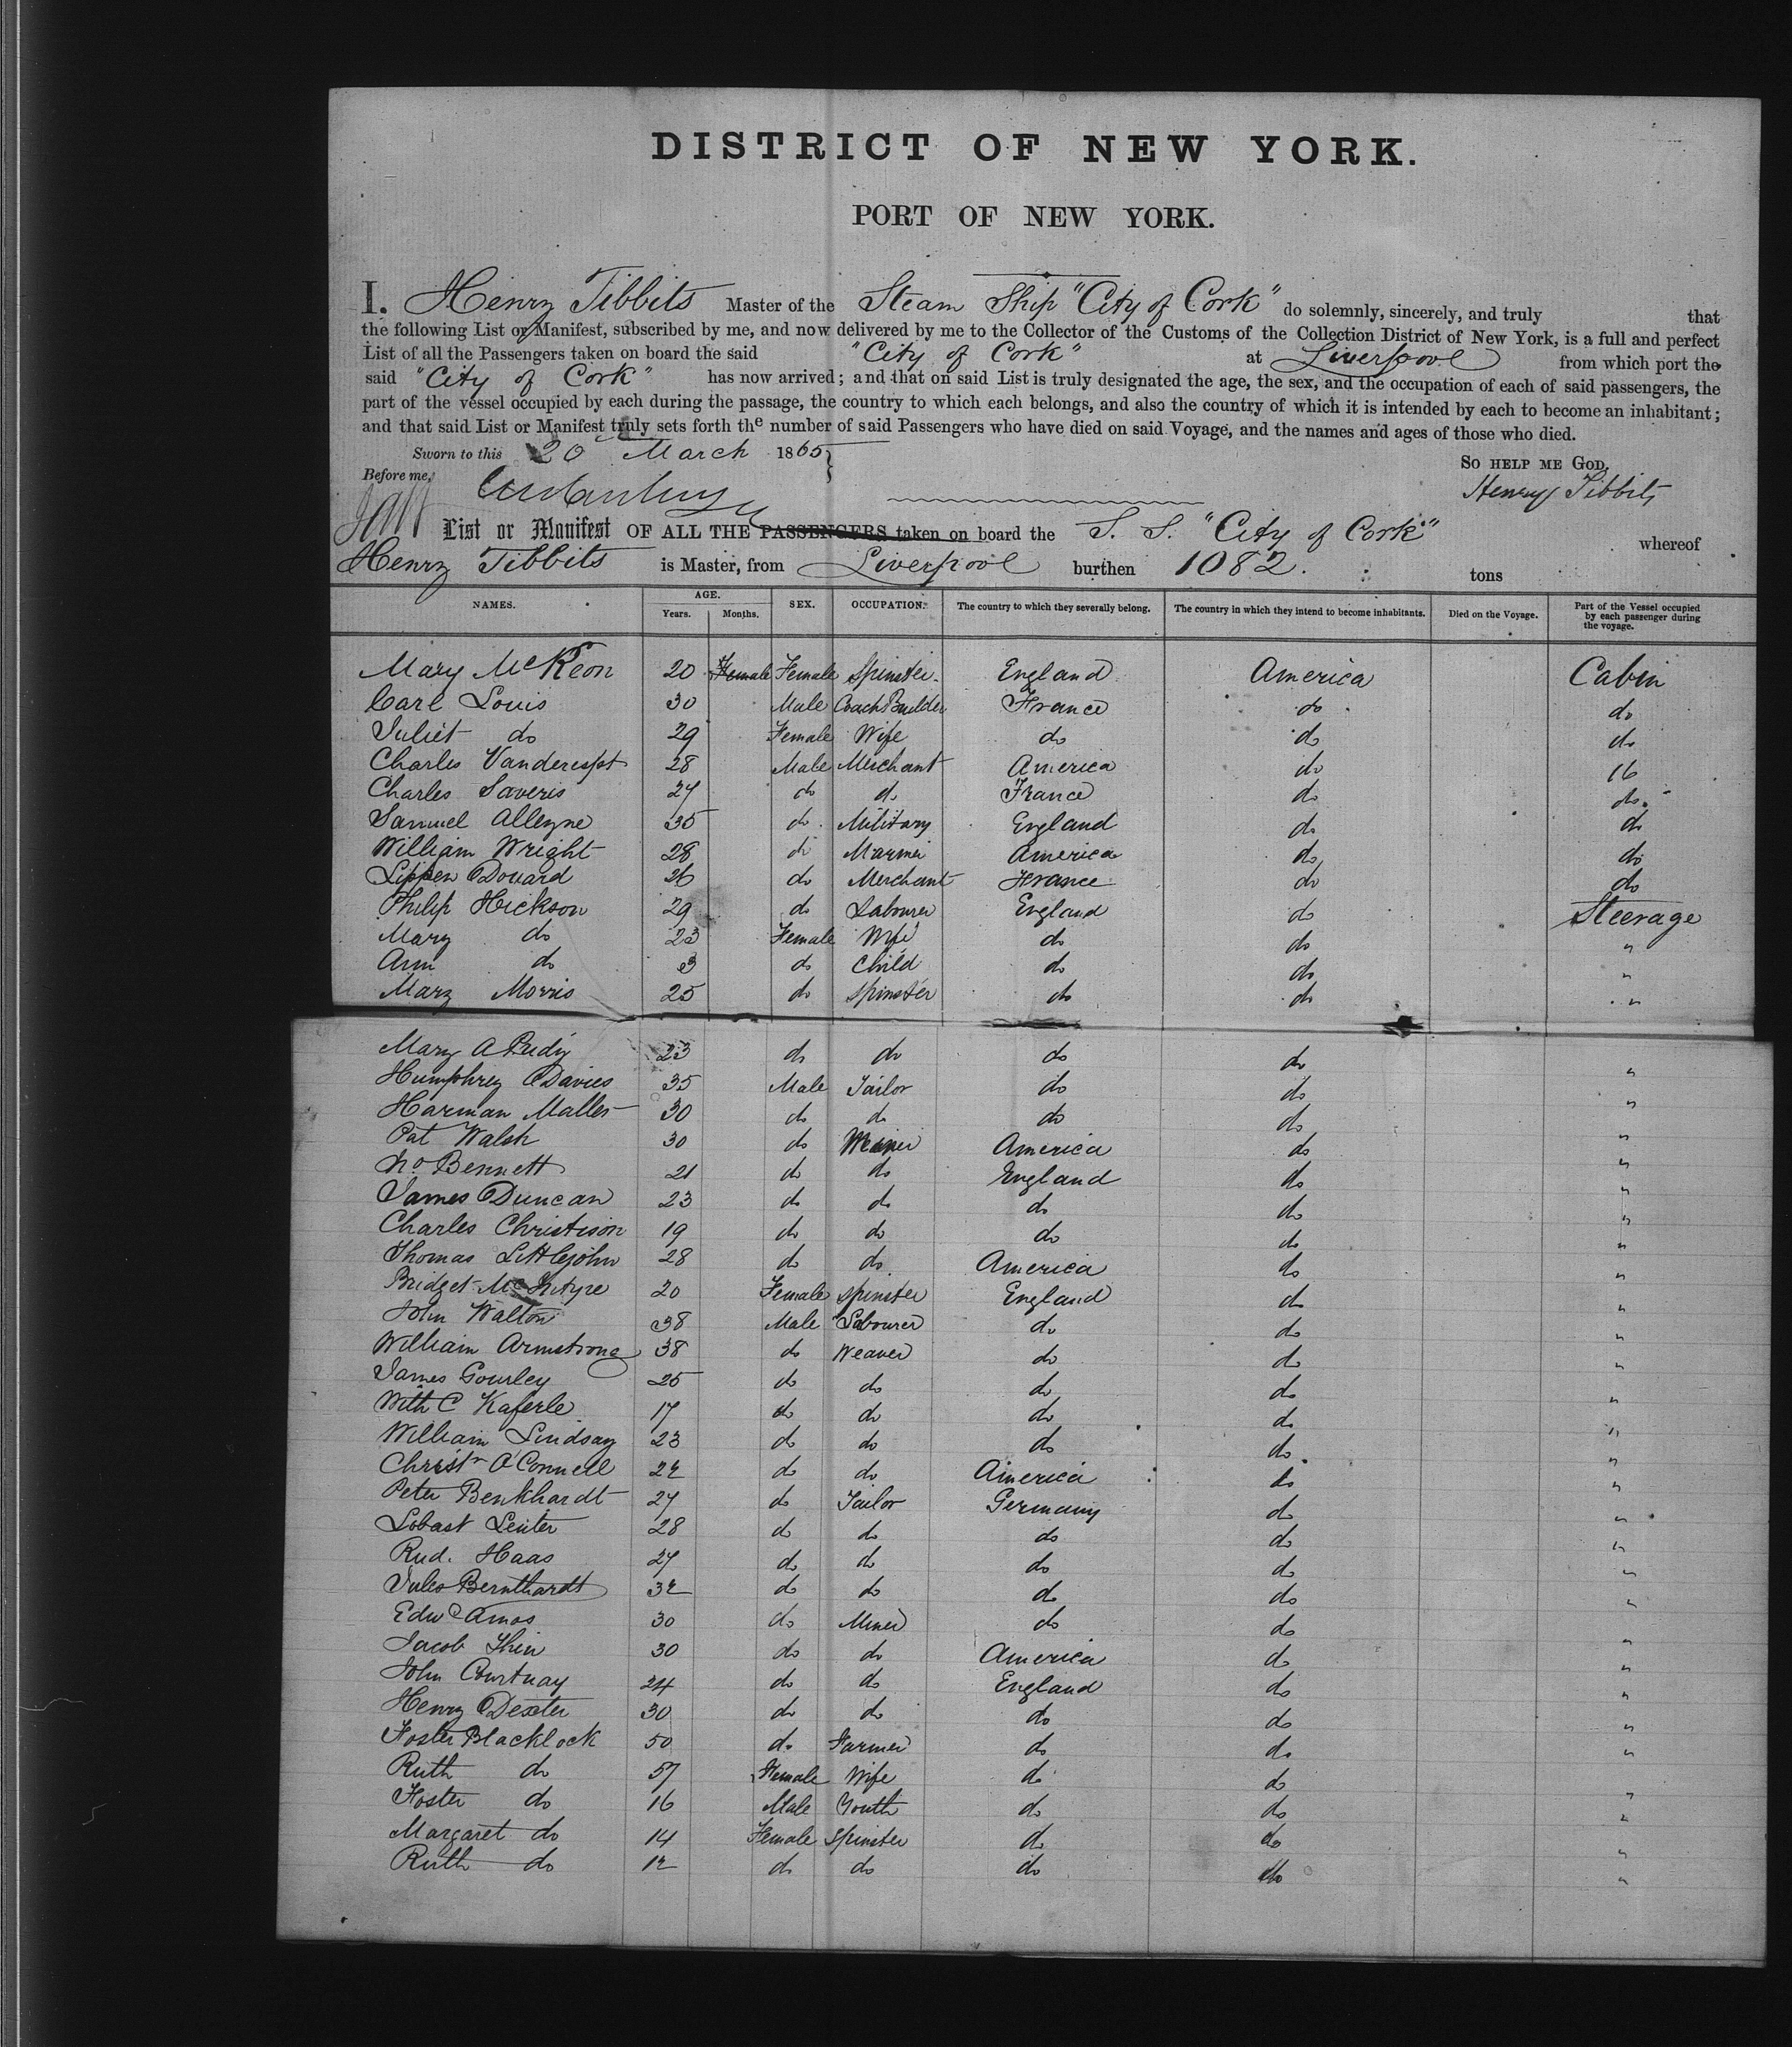 DISTRICT OF NEW YORK.
PORT OF NEW YORK.
I. Henry Tibbits Master of the Steam Ship "City of Cork" do solemnly, sincerely, and truly that
the following List or Manifest, subscribed by me, and now delivered by me to the Collector of the Customs of the Collection District of New York, is a full and perfect
List of all the Passengers taken on board the said "City of Cork" at Liverpool from which port the
said "City of Cork" has now arrived; and that on said List is truly designated the age, the sex, and the occupation of each of said passengers, the
part of the vessel occupied by each during the passage, the country to which each belongs, and also the country of which it is intended by each to become an inhabitant;
and that said List or Manifest truly sets forth the number of said Passengers who have died on said Voyage, and the names and ages of those who died.
Sworn to this 20 March 1865
So HELP ME GOD.
Before me,
Henry Tibbits
List or Manifest OF ALL THE PASSENGERS taken on board the S. S. "City of Cork" whereof
Henry Tibbits is Master, from Liverpool burthen 1082. tons
NAMES. AGE. Years. Months. SEX. OCCUPATION. The country to which they severally belong. The country in which they intend to become inhabitants. Died on the Voyage. Part of the Vessel occupied by each passenger during the voyage.
Mary McKeon 20 Female Female Spinster England America Cabin
Carl Louis 30 Male Coach Builder France do do
Juliet do 29 Female Wife do do do
Charles 28 Male Merchant America do
Charles Saveris 27 do do France do do
Samuel Alleyne 35 do Military England do do
William Wright 28 do America do do
Douard 26 do Merchant France do do
Philip Hickson 29 do Labourer England do Steerage
Mary do 23 Female Wife do do "
Ann do 3 do Child do do "
Mary Morris 25 do Spinster do do "
Mary A 23 do do do do "
Humphrey Davies 35 Male Tailor do do "
Harman 30 do do do do "
Pat Walsh 30 do America do "
Bennett 21 do do England do "
James Duncan 23 do do do do "
Charles Christison 19 do do do do "
Thomas Littlejohn 28 do do America do "
Bridget McIntyre 20 Female Spinster England do "
John Walton 38 Male Labourer do do "
William Armstrong 38 do Weaver do do "
James Gourley 25 do do do do "
C Kaferle 17 do do do do "
William Lindsay 23 do do do do "
Christr O'Connell 22 do do America do "
Peter Benkhardt 27 do Tailor Germany do "
Lobast Leuter 28 do do do do "
Rud. Haas 27 do do do do "
Jules Bernthardt 32 do do do do "
Edwd Amos 30 do Miner do do "
Jacob 30 do do America do "
John Courtnay 24 do do England do "
Henry Dexter 30 do do do do "
Foster Blacklock 50 do Farmer do do "
Ruth do 57 Female Wife do do "
Foster do 16 Male Youth do do "
Margaret do 14 Female Spinster do do "
Ruth do 12 do do do do "